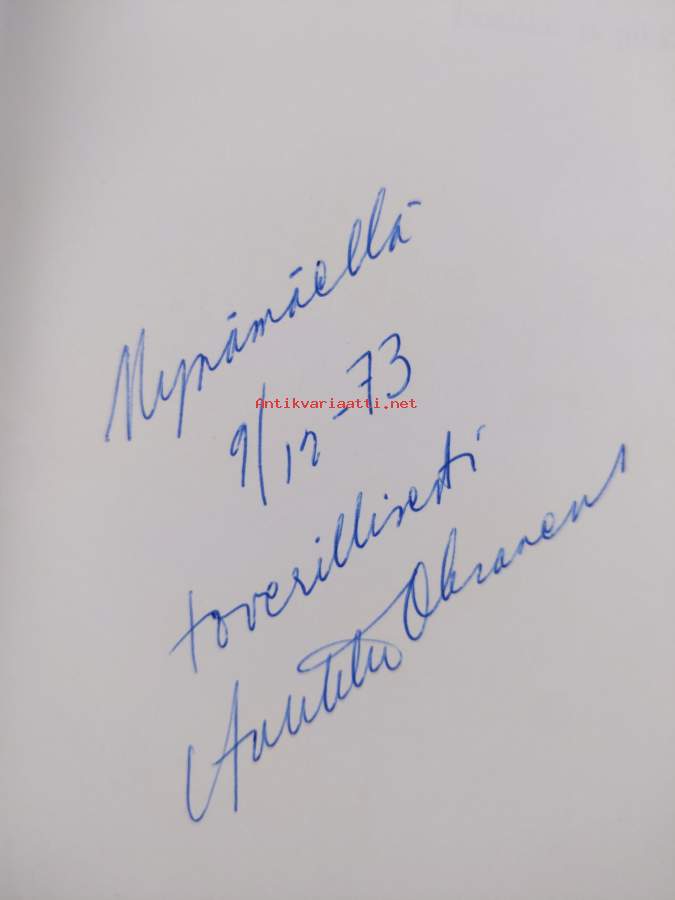 Mynämäellä
9/12-73
Antikvariaatti.net
toverillisesti
Aulikki Oksanen